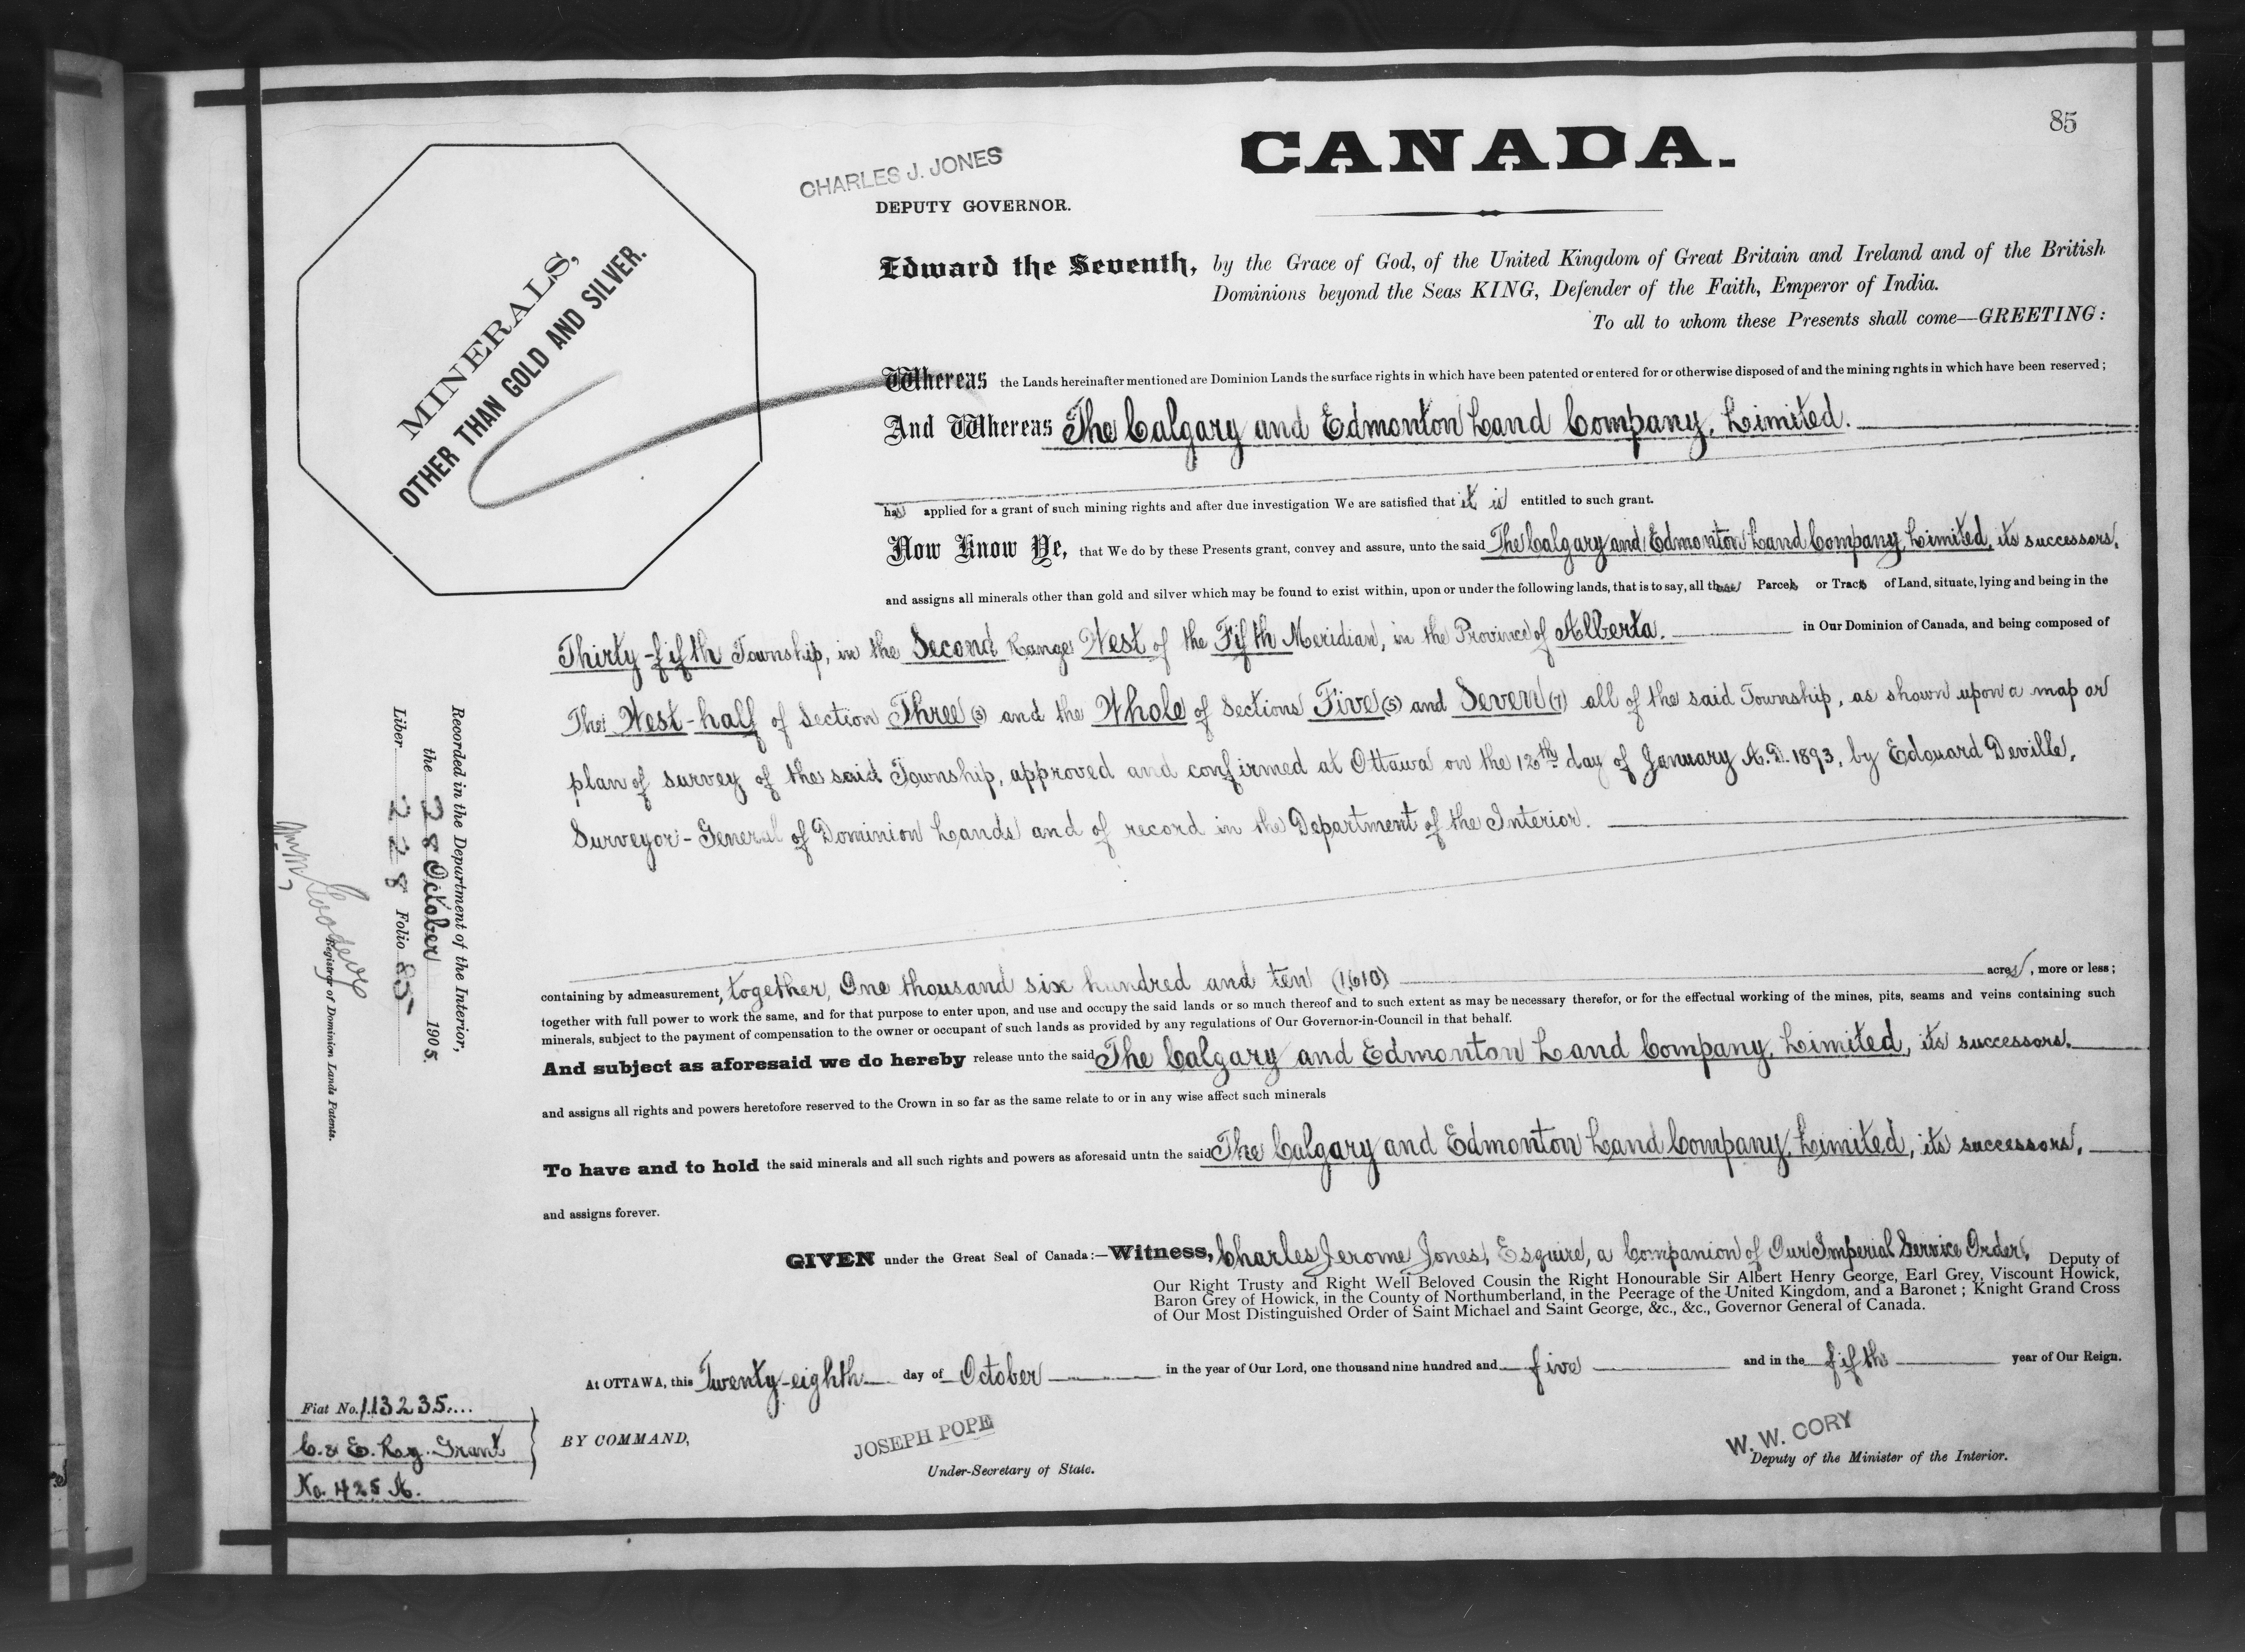 85
CANADA.
CHARLES J. JONES
DEPUTY GOVERNOR.
MINERALS,
OTHER THAN GOLD AND SILVER.
Edward the Seventh, by the Grace of God, of the United Kingdom of Great Britain and Ireland and of the British
Dominions beyond the Seas KING, Defender of the Faith, Emperor of India.
To all to whom these Presents shall come—GREETING:
Whereas the Lands hereinafter mentioned are Dominion Lands the surface rights in which have been patented or entered for or otherwise disposed of and the mining rights in which have been reserved;
And Whereas The Calgary and Edmonton Land Company, Limited.
has applied for a grant of such mining rights and after due investigation We are satisfied that it is entitled to such grant.
Now Know Ye, that We do by these Presents grant, convey and assure, unto the said The Calgary and Edmonton Land Company, Limited, its successors,
and assigns all minerals other than gold and silver which may be found to exist within, upon or under the following lands, that is to say, all those Parcels or Tracts of Land, situate, lying and being in the
Thirty-fifth Township, in the Second Range West of the Fifth Meridian, in the Province of Alberta. in Our Dominion of Canada, and being composed of
The West-half of Section Three (3) and the Whole of Sections Five (5) and Seven (7) all of the said Township, as shown upon a map or
plan of survey of the said Township, approved and confirmed at Ottawa on the 12th day of January A.D. 1893, by Edouard Deville,
Surveyor-General of Dominion Lands and of record in the Department of the Interior.
containing by admeasurement, together, One thousand six hundred and ten (1,610) acres, more or less;
together with full power to work the same, and for that purpose to enter upon, and use and occupy the said lands or so much thereof and to such extent as may be necessary therefor, or for the effectual working of the mines, pits, seams and veins containing such
minerals, subject to the payment of compensation to the owner or occupant of such lands as provided by any regulations of Our Governor-in-Council in that behalf.
And subject as aforesaid we do hereby release unto the said The Calgary and Edmonton Land Company, Limited, its successors.
and assigns all rights and powers heretofore reserved to the Crown in so far as the same relate to or in any wise affect such minerals
To have and to hold the said minerals and all such rights and powers as aforesaid untn the said The Calgary and Edmonton Land Company, Limited, its successors,
and assigns forever.
GIVEN under the Great Seal of Canada:—Witness, Charles Jerome Jones, Esquire, a Companion of Our Imperial Service Order, Deputy of
Our Right Trusty and Right Well Beloved Cousin the Right Honourable Sir Albert Henry George, Earl Grey, Viscount Howick,
Baron Grey of Howick, in the County of Northumberland, in the Peerage of the United Kingdom, and a Baronet; Knight Grand Cross
of Our Most Distinguished Order of Saint Michael and Saint George, &c., &c., Governor General of Canada.
At OTTAWA, this Twenty-eighth day of October in the year of Our Lord, one thousand nine hundred and five and in the fifth year of Our Reign.
BY COMMAND,
JOSEPH POPE
Under-Secretary of State.
W. W. CORY
Deputy of the Minister of the Interior.
Recorded in the Department of the Interior,
the 28 October 1905.
Liber 228 Folio 85
Registrar of Dominion Lands Patents.
Fiat No. 113235
C. & E. Ry. Grant
No. 425 A.